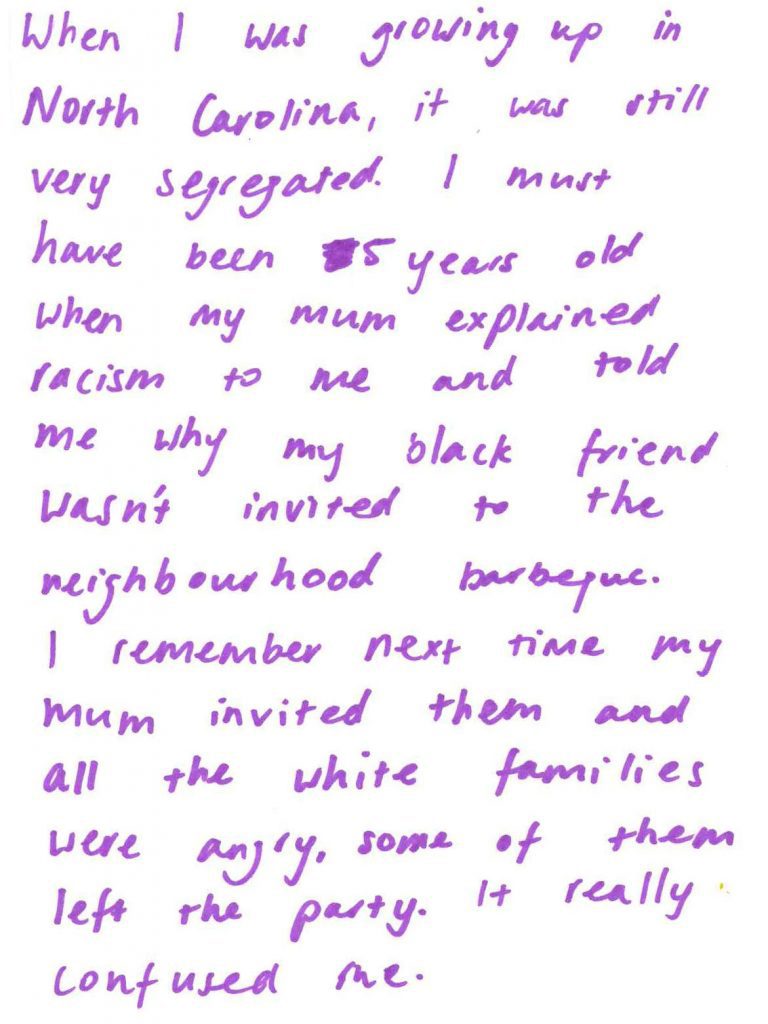 When I was growing up in
North Carolina, it was still
very segregated. I must
have been 5 years old
when my mum explained
racism to me and told
me why my black friend
wasn't invited to the
neighbourhood barbeque.
I remember next time my
mum invited them and
all the white families
were angry, some of them
left the party. It really
confused me.